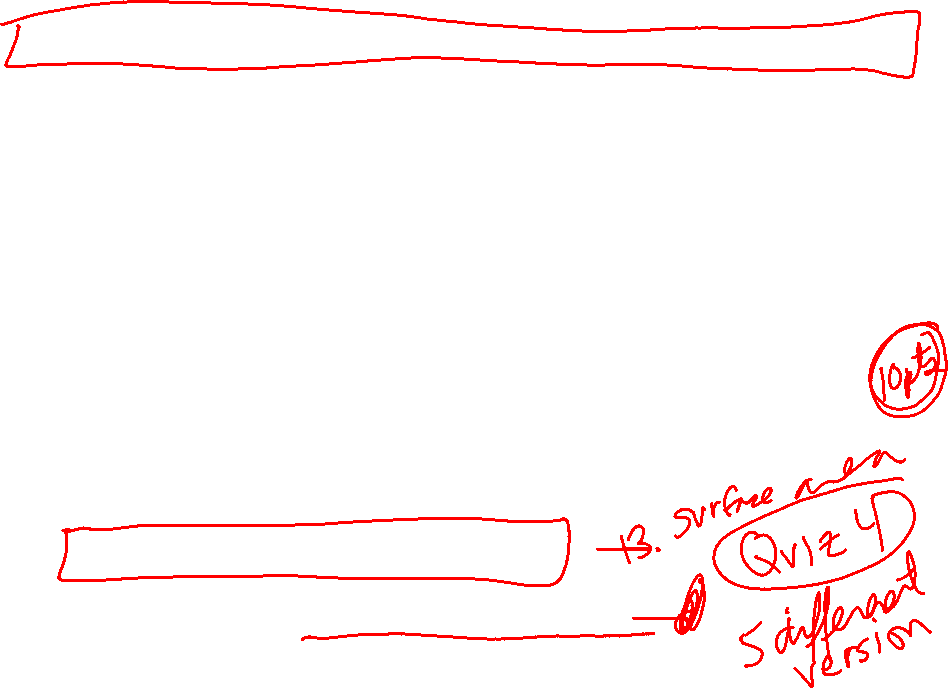 10pts
13. surface area
Quiz 4
5 different
version